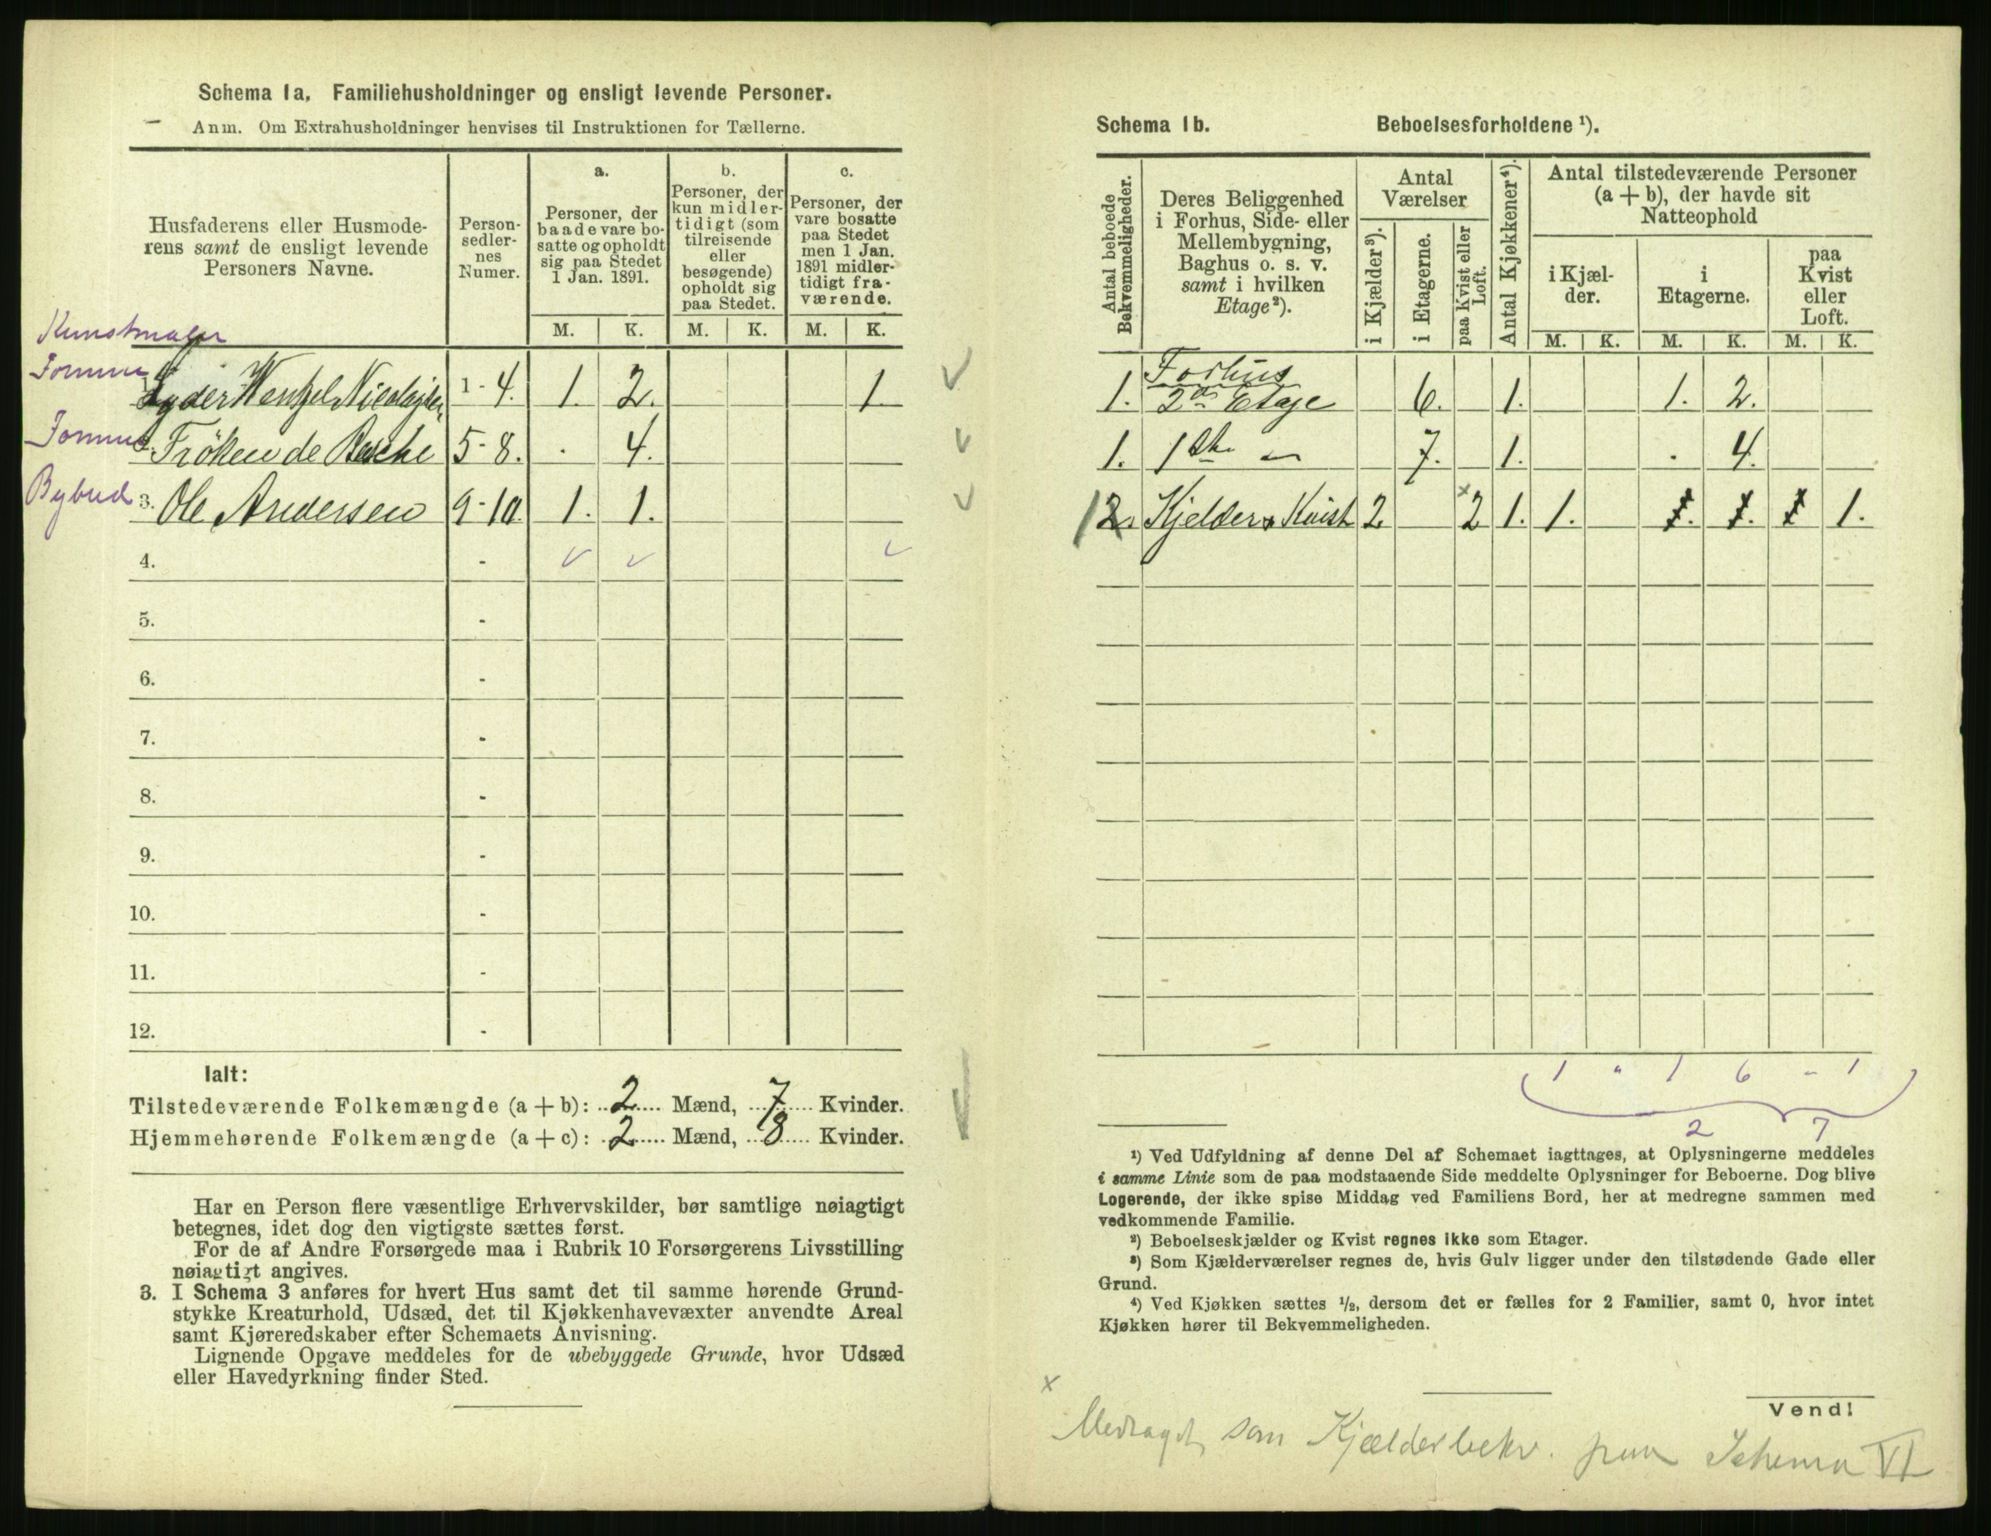 Schema 1a. Familiehusholdninger og ensligt levende Personer.
Anm. Om Extrahusholdninger henvises til Instruktionen for Tællerne.
Husfaderens eller Husmode-
rens samt de ensligt levende
Personers Navne.
Person-
sedler-
nes
Numer.
a.
Personer, der
baade vare bo-
satte og opholdt
sig paa Stedet
1 Jan. 1891.
b.
Personer, der
kun midler-
tidigt (som
tilreisende
eller
besøgende)
opholdt sig
paa Stedet.
c.
Personer, der
vare bosatte
paa Stedet
men 1 Jan.
1891 midler-
tidigt fra-
værende.
M. K. M. K. M. K.
Kunstmaler
1. Lyder Wentzel Nicolaysen 1 - 4. 1. 2. 1.
2. Frøken de Besche 5 - 8. . 4.
Bybud
3. Ole Andersen 9 - 10. 1. 1.
4. -
5. -
6. -
7. -
8. -
9. -
10. -
11. -
12. -
Ialt:
Tilstedeværende Folkemængde (a + b): 2 Mænd, 7 Kvinder.
Hjemmehørende Folkemængde (a + c): 2 Mænd, 8 Kvinder.
Har en Person flere væsentlige Erhvervskilder, bør samtlige nøiagtigt
betegnes, idet dog den vigtigste sættes først.
For de af Andre Forsørgede maa i Rubrik 10 Forsørgerens Livsstilling
nøiagtigt angives.
3. I Schema 3 anføres for hvert Hus samt det til samme hørende Grund-
stykke Kreaturhold, Udsæd, det til Kjøkkenhavevæxter anvendte Areal
samt Kjøreredskaber efter Schemaets Anvisning.
Lignende Opgave meddeles for de ubebyggede Grunde, hvor Udsæd
eller Havedyrkning finder Sted.
Schema 1b. Beboelsesforholdene ¹).
Antal beboede
Bekvemmeligheder.
Deres Beliggenhed
i Forhus, Side- eller
Mellembygning,
Baghus o. s. v.
samt i hvilken
Etage²).
Antal
Værelser
i Kjælder³).
i Etagerne.
paa Kvist eller
Loft.
Antal Kjøkkener⁴).
Antal tilstedeværende Personer
(a + b), der havde sit
Natteophold
i Kjæl-
der.
i
Etagerne.
paa
Kvist
eller
Loft.
M. K. M. K. M. K.
Forhus
1. 2den Etage 6. 1. 1. 2.
1. 1ste 〃 7. 1. . 4.
1 2. Kjelder & Kvist 2. x 2 1. 1. 1. 1. 1 1.
1 " 1 6 - 1
2 7
¹) Ved Udfyldning af denne Del af Schemaet iagttages, at Oplysningerne meddeles
i samme Linie som de paa modstaaende Side meddelte Oplysninger for Beboerne. Dog blive
Logerende, der ikke spise Middag ved Familiens Bord, her at medregne sammen med
vedkommende Familie.
²) Beboelseskjælder og Kvist regnes ikke som Etager.
³) Som Kjælderværelser regnes de, hvis Gulv ligger under den tilstødende Gade eller
Grund.
⁴) Ved Kjøkken sættes ½, dersom det er fælles for 2 Familier, samt 0, hvor intet
Kjøkken hører til Bekvemmeligheden.
Vend!
x
Medtaget som Kjælderbekv. paa Schema VI